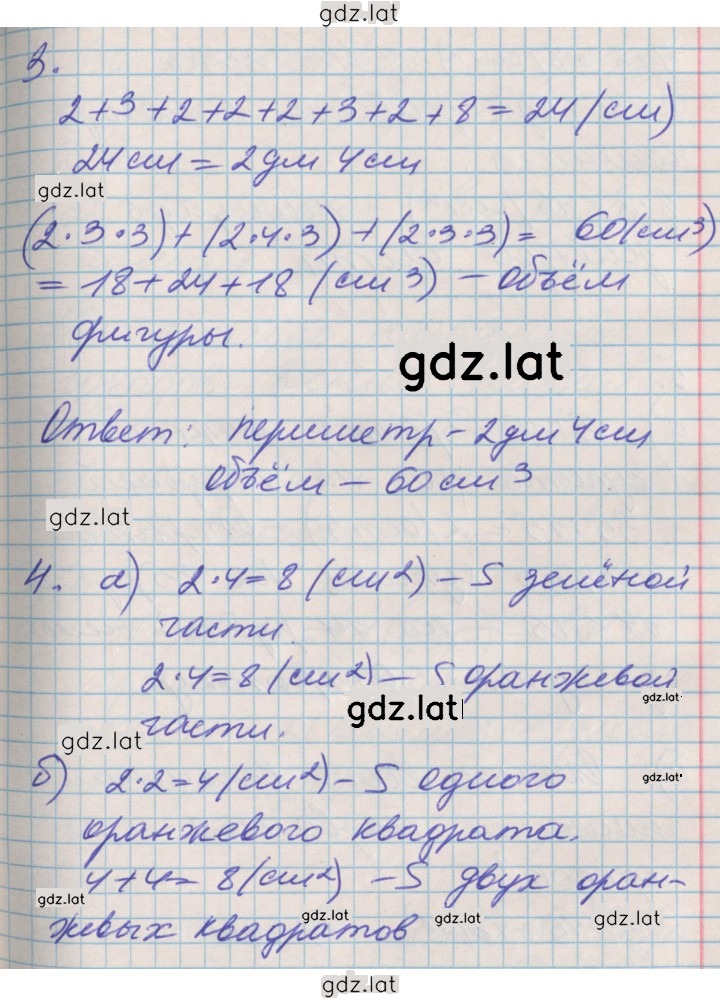 gdz.lat
3.
2+3+2+2+2+3+2+8=24(см)
24см = 2дм 4см
gdz.lat
(2·3·3)+(2·4·3)+(2·3·3)= 60(см3)
=18+24+18 (см3) - объём
фигуры.
gdz.lat
Ответ: периметр-2дм 4см
объём - 60см3
gdz.lat
4. а) 2·4=8 (см2) - S зелёной
части.
2·4=8 (см2) - S оранжевой
gdz.lat
gdz.lat
части.
gdz.lat
б) 2·2=4(см2)-S одного
gdz.lat
оранжевого квадрата.
4+4= 8(см2) -S двух оран-
gdz.lat
жевых квадратов
gdz.lat
gdz.lat
gdz.lat
gdz.lat